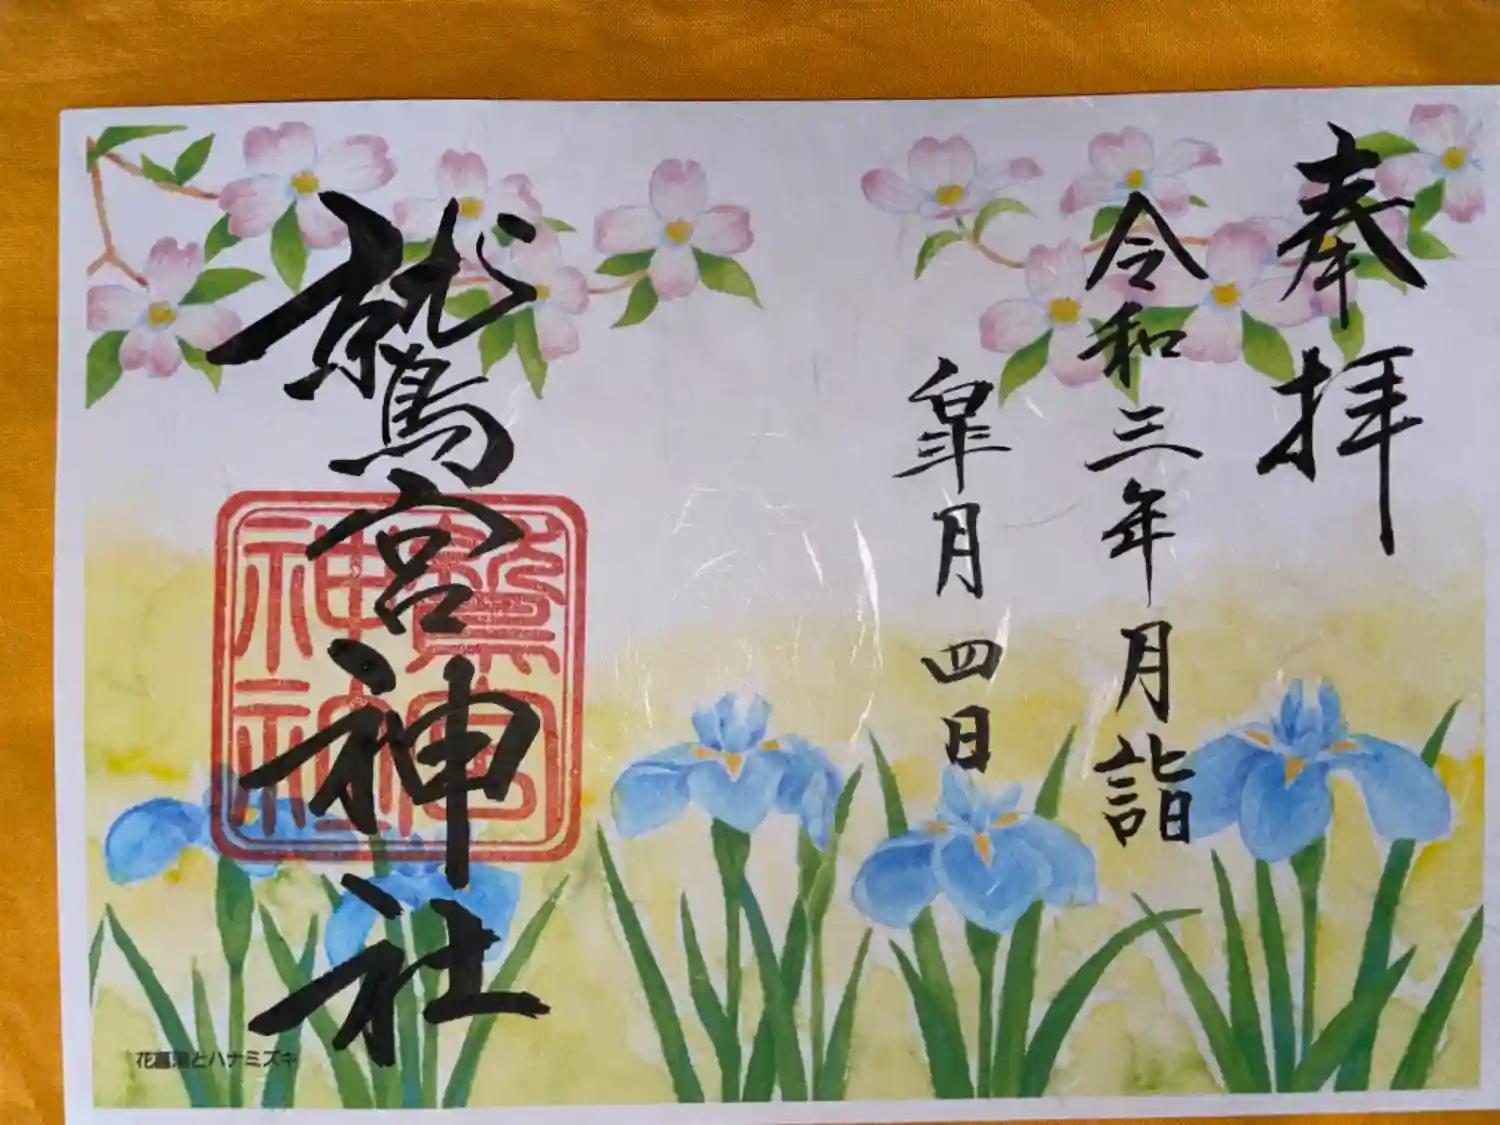 奉拝
令和三年月詣
皐月四日
鷲宮神社
鷲宮
神社
花菖蒲とハナミズキ